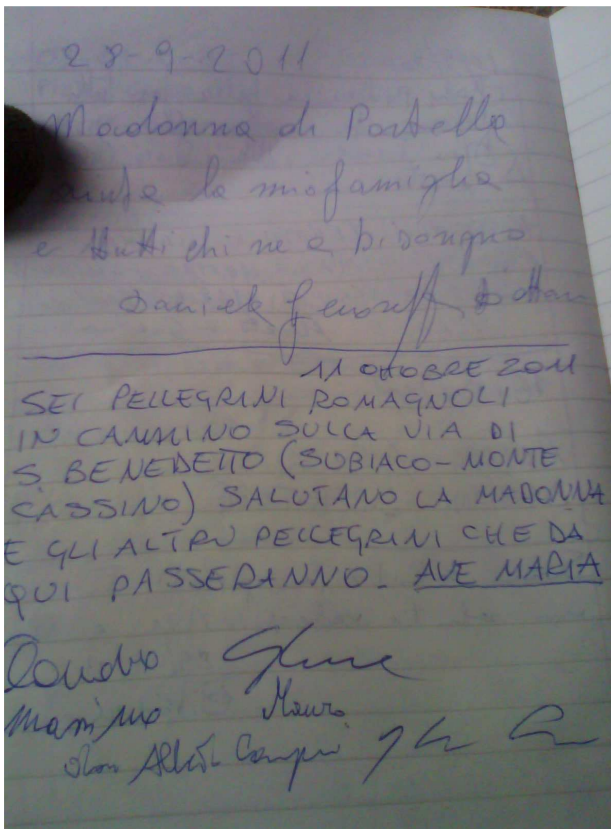 28-9-2011
Madonna di Portella
aiuta la mia famiglia
e tutti chi ne a bisogno
Daniele
11 OTTOBRE 2011
SEI PELLEGRINI ROMAGNOLI
IN CAMMINO SULLA VIA DI
S. BENEDETTO (SUBIACO-MONTE
CASSINO) SALUTANO LA MADONNA
E GLI ALTRI PELLEGRINI CHE DA
QUI PASSERANNO. AVE MARIA
Claudio
Massimo Mauro
don